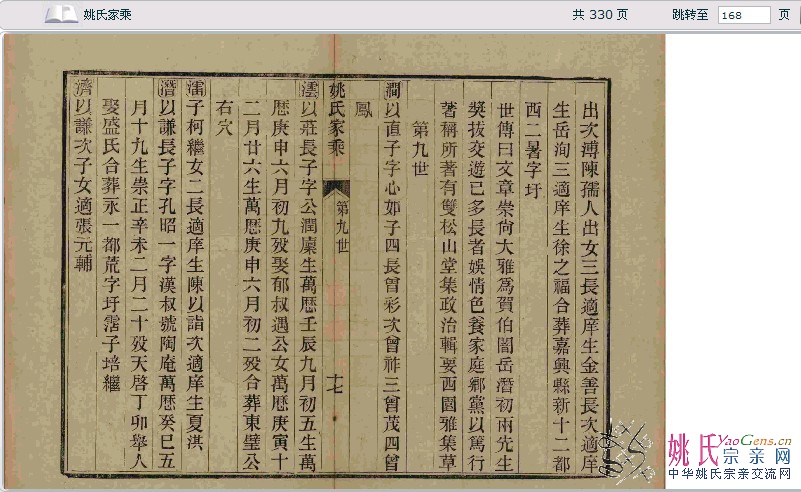 姚氏家乘
共 330 页
跳转至 168 页
出次溥陳孺人出女三長適庠生金善長次適庠
生岳洵三適庠生徐之福合葬嘉興縣新十二都
西二暑字圩
世傳曰文章崇尚大雅爲賀伯闇岳潛初兩先生
奬拔交遊已多長者娛情色養家庭鄉黨以篤行
著稱所著有雙松山堂集政治輯要西園雅集草
第九世
澗以直子字心如子四長曾彩次曾祚三曾茂四曾
鳳
姚氏家乘 第九世 十七
澐以莊長子字公潤廩生萬曆壬辰九月初五生萬
曆庚申六月初九歿娶郁叔遇公女萬曆庚寅十
二月廿六生萬曆庚申六月初二歿合葬東璧公
右穴
子柯繼女二長適庠生陳以詣次適庠生夏洪
潛以謙長子字孔昭一字漢叔號陶庵萬曆癸巳五
月十九生崇正辛未二月二十歿天啓丁卯舉人
娶盛氏合葬永一都荒字圩子培繼
濟以謙次子女適張元輔
姚氏宗亲网
YaoGens.cn
中华姚氏宗亲交流网